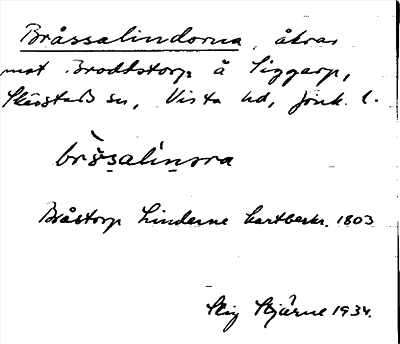 Bråssalindorna, åkrar
mot Brodtstorp å Siggarp,
Skärstads sn, Vista hd, Jönk. l.
brò̀s̱alíṉora
Bråstorp Linderne kartbeskr. 1803
Stig Stjärne 1934.